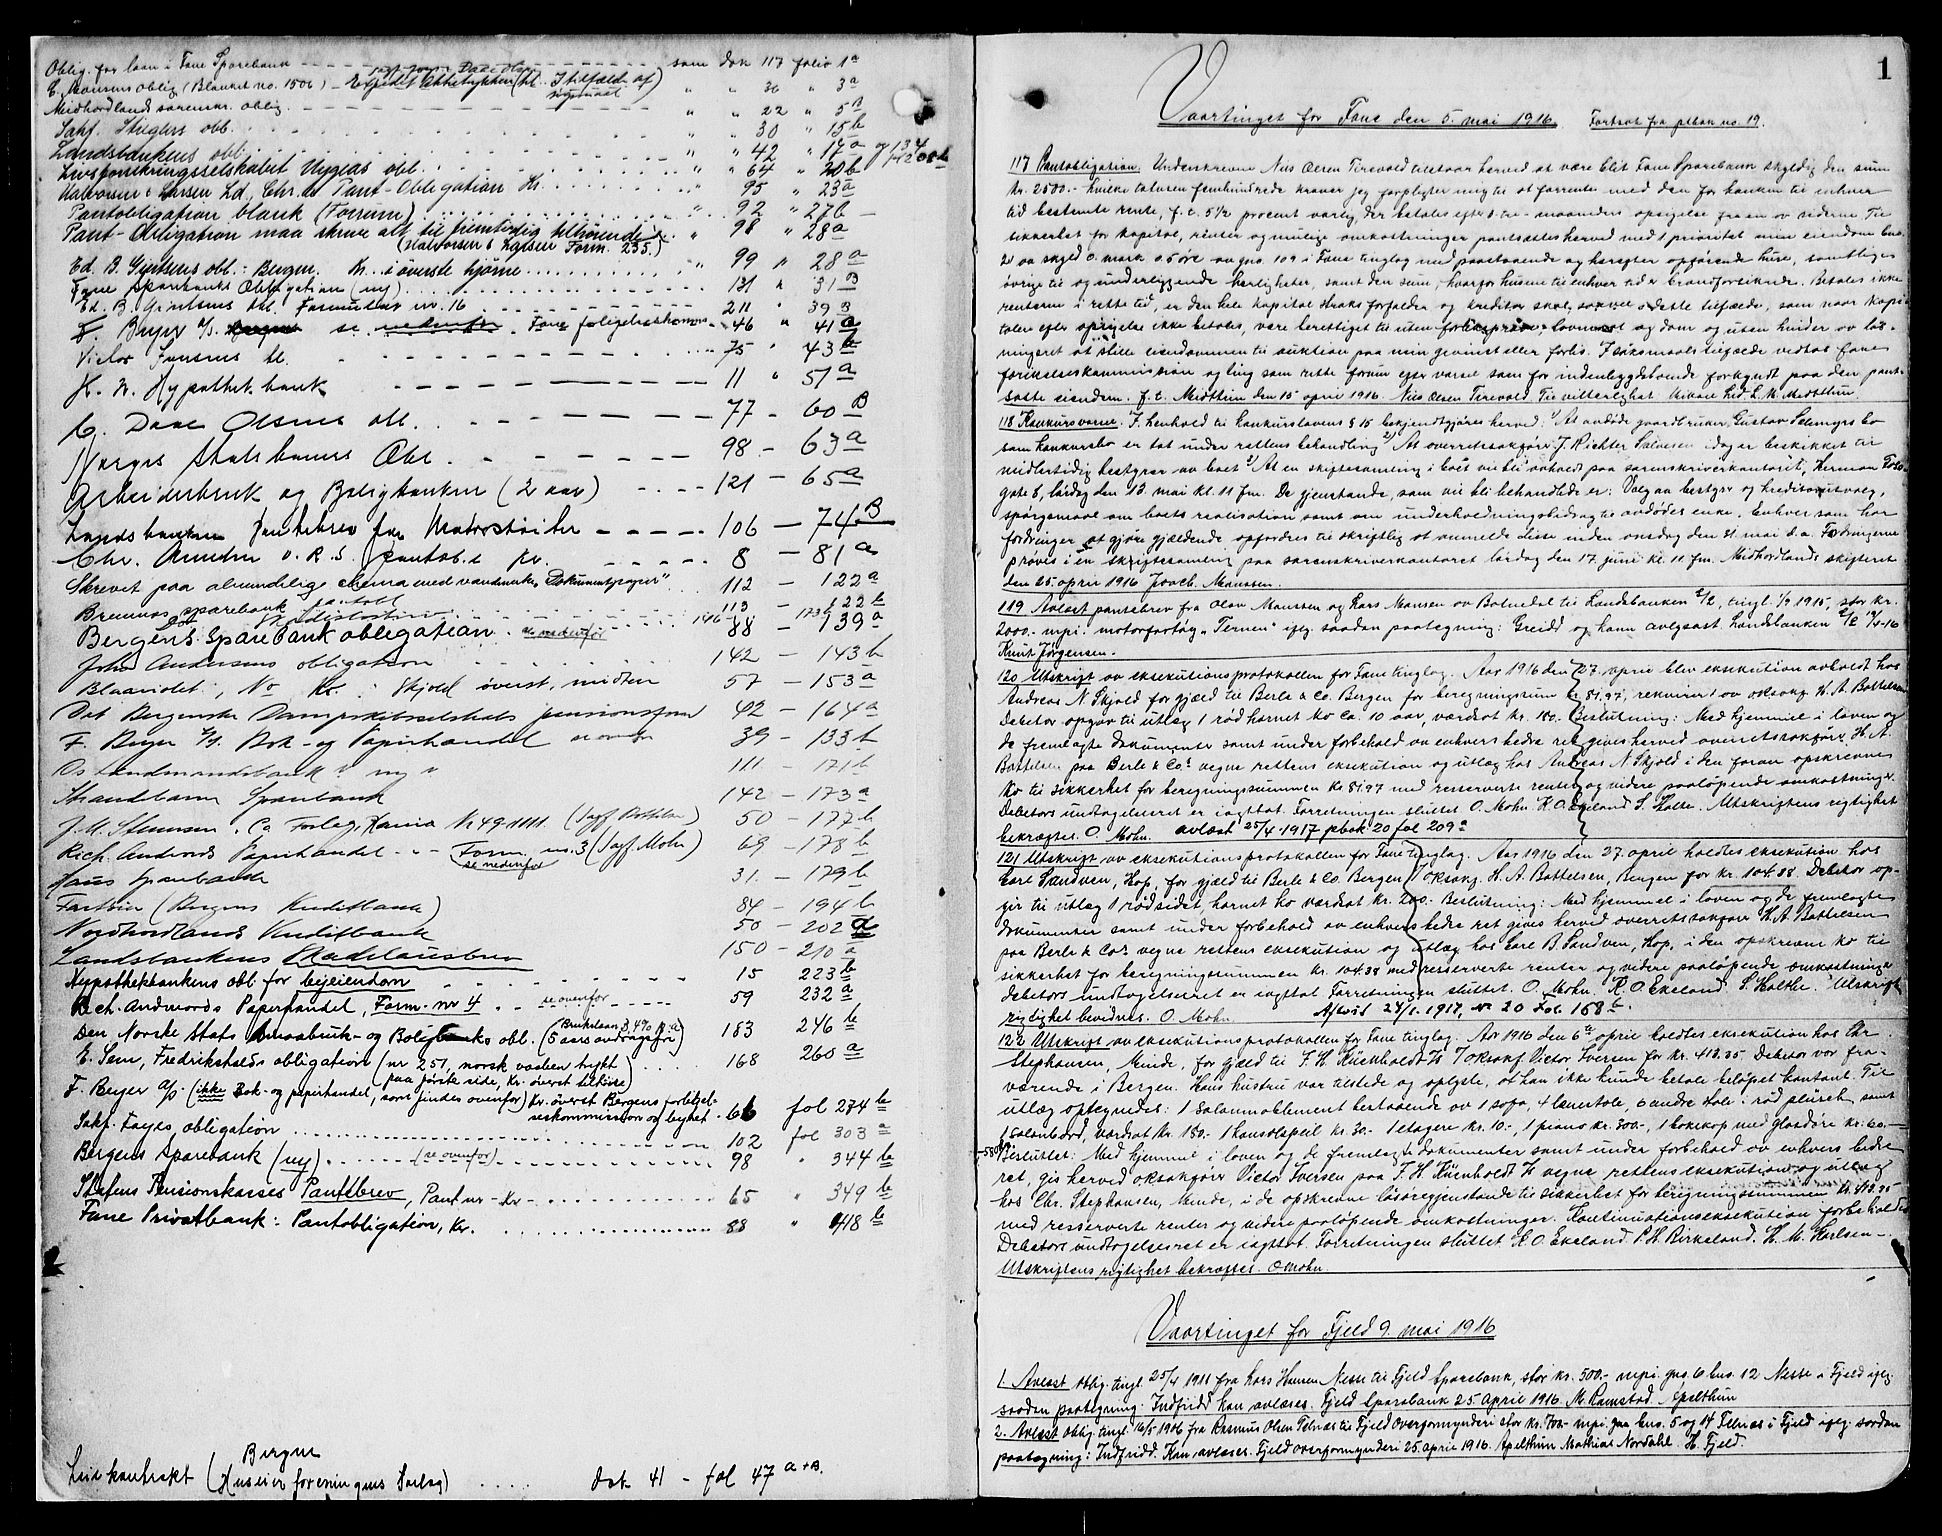 Oblig. for laan i Fane Sparebank som dok 117 folio 1a
C. Monsens oblig (Blanket no. 1506) " " 36 " 3a
Midhordlands sorenskr. oblig. " " 22 " 5B
Sakf. Stieglers obl. " " 30 " 15b
Landsbankens obl. " " 42 " 17a og
Livsforsikringsselskabet Hygeas obl. " " 64 " 20b
Halvorsen & Larsen Ld, Chr.a Pant-Obligation Kr. " 95 " 23a
Pantobligation blank (Forrum) " 92 " 27b
Pant-Obligation maa skrive alt til fremtidig tilhørende " 98 " 28a
(Halvorsen & Larsen Form. 235.)
Ed. B. Giertsens obl.: Bergen. Kr. i øverste hjørne " 99 " 28a
Fane Sparebanks Obligation (ny) 131 " 31B
Ed. B. Giertsens obl. Formular nr. 16 211 " 39B
F. Beyer a/s. se Fane forligelseskomm 46 " 41a
Victor Iversens bl. 75 " 43b
K. N. Hypothekbank 11 " 51a
C. Dane Olsens obl. 77 - 60B
Norges Statsbaners Obl. 98 - 63a
Arbeiderbruk og Boligbanken (2 aar) 121 - 65a
Landsbanken Pantebrev fra Motorskøiter 106 - 74B
Chr. Amundsen o. R. S. pantob.l kr. 8 - 81a
Skrevet paa almindelige skema med vandmerke "Dokumentpapir" 112 - 122a
Bremnes sparebank pantobl 113 - 122b
Bergens Sparebank obligation. se nedenfor 88 - 139a
John Andersens obligation 142 - 143b
Blaaviolet, No Kr. : Skjold øverst, midten 57 - 153a
Det Bergenske Dampskibsselskabs pensionsfond 42 - 164a
F. Beyer a/s. Bok- og Papirhandel se ovenfor 39 - 133b
Os Landmandsbank "ny" 111 - 171b
Strandebarm Sparebank 142 - 173a
J. M. Stenersen & Co Forlag, Kania Nr 49-1111. (Sagf. Bottelsen) 50 - 177b
Rich. Andvords Papirhandel - - Form. nr. 3 (Sagf. Mohn) 69 - 178b
se nedenfor
Haus Sparebank 31 - 179b
Fartøier (Bergens Kreditbank) 84 - 194b
Nordhordlands Kreditbank 50 - 202a
Landsbankens Skadesløsbrev 150 - 210a
Hypothekbankens obl. for byeiendom 15 223b
Rich. Andvords Papirhandel, Form. nr 4 se ovenfor 59 232a
Den Norske Stats Smaabruk- og Boligbanks obl. (5 aars avdragsfri) 183 246b
E. Sem, Fredrikshalds obligation (nr 251, norsk vaaben trykt 168 260a
paa første side, Kr. øverst tilhøire)
F. Beyer a/s. (ikke Bok- og papirhandel, som findes ovenfor) Kr. øverst Bergens forlikelseskommission og byret 66 fol 274b
Sakf. Fayes obligation 102 fol 303a
Bergens Sparebank (ny) (se ovenfor) 98 " 344b
Statens Pensionskasses Pantebrev, Pant nr - Kr - 65 " 349b
Fane Privatbank: Pantobligation, Kr. 88 " 418b
Bergens
Leiekontrakt (Huseierforeningens Forlag) dok 41 - fol 47 a+B.
1
Vaartinget for Fane den 5. mai 1916. Fortsat fra pbok no. 19.
117 Pantobligation. Underskrevne Nils Olsen Tirevold tilstaar herved at være blit Fane Sparebank skyldig den sum
kr. 2500.- hvilke totusen femhundrede kroner jeg forpligter mig til at forrente med den for banken til enhver
tid bestemte rente, f.t. 5 1/2 procent aarlig, der betales efter 3 tre- maaneders opsigelse fra en av siderne. Til
sikkerhet for kapital, renter og mulige omkostninger pantsættes herved med 1 prioritet min eiendom bno.
2 av skyld 0. mark 0.5 øre av gno. 109 i Fane tinglag med paastaaende og herefter opførende huse, som bliges
øvrige til og underliggende herligheter, samt den sum, hvorfor husene til enhver tid er brandforsikrede. Betales ikke
renterne i rette tid, er den hele kapital straks forfalden og kreditor skal, saavel i dette tilfælde, som naar kapi-
talen efter opsigelse ikke betales, være berettiget til uten forliksprøve, lovmaal og dom og uten hinder av løs-
ningsret at stille eiendommen til auktion paa min gevinst eller forlis. I søksmaalstilfælde vedtas Fane
forlikelseskommission og ting som rette forum efter varsel som for indenbygdsboende forkyndt paa den pant-
satte eiendom. f.t. Midttun den 15 april 1916. Nils Olsen Tirevold. Til vitterlighet
118 Konkursvarsel. I henhold til konkurslovens § 15 bekjendtgjøres herved: 1) At avdøde gaardbruker Gustav Selmers bo
som konkursbo er tat under rettens behandling 2) At overretssakfører J. Richter Salvesen idag er beskikket til
midlertidig bestyrer av boet 3) At en skiftesamling i boet vil bli avholdt paa sorenskriverkontoret, Herman Foss
gate 8, lørdag den 13. mai kl. 11 fm. De gjenstande, som vil bli behandlede er: Valg av bestyrer og kreditorutvalg,
spørgsmaal om boets realisation samt om underholdningsbidrag til avdødes enke. Enhver som har
fordringer at gjøre gjældende opfordres til skriftlig at anmelde disse inden onsdag den 31. mai d.a. Fordringerne
prøves i en skiftesamling paa sorenskriverkontoret lørdag den 17. juni kl. 11 fm. Midhordlands skifteret
den 25. april 1916 Joach. Monssen.
119 Avlæst pantebrev fra Olav Monssen og Lars Monsen av Bolmedal til Landsbanken 2/2, tingl. 1/2 1915, stor kr.
2000.- m.pr. i motorfartøy "Ternen" efter saadan paategning: Greidd og kann avlysast Landsbanken
Knut Jørgensen.
120 Utskrift av eksekutionsprotokollen for Fane tinglag. Aar 1916 den 27. april blev eksekution avholdt hos
Andreas N Skjold for gjæld til Berle & Co. Bergen for beregningssum kr 81.97, rekvirert av oksakf. H. A. Bottelsen
Debetor opgav til utlæg 1 rød hornet ko ca. 10 aar, værdsat kr. 180.- Beslutning: Med hjemmel i loven og
de fremlagte dokumenter samt under forbehold av enhvers bedre ret gives herved overretssakfører H. A.
Bottelsen paa Berle & Co.s vegne rettens eksekution og utlæg hos Andreas N Skjold i den foran opskrevne
ko til sikkerhet for beregningssummen kr 81.97 med resserverte renter og videre paaløpende omkostninger.
Debetors undtagelsesret er iagttat. Forretningen sluttet O. Mohn. K. O. Ekeland S. Holthe. Utskriftens rigtighet
bekræftes. O. Mohn. avlæst 25/4-1917 pbok 20 fol 209a
121 Utskrift av eksekutionsprotokollen for Fane tinglag. Aar 1916 den 27. april holdtes eksekution hos
Carl Sandven, Hop, for gjæld til Berle & Co. Bergen v/ oksakf. H. A. Bottelsen, Bergen for kr. 104.38 Debetor op-
gir til utlæg 1 rødsidet, hornet ko værdsat kr. 200.- Beslutning: Med hjemmel i loven og de fremlagte
dokumenter samt under forbehold av enhvers bedre ret gives herved overretssakfører H. A. Bottelsen
paa Berle & Co.s vegne rettens eksekution og utlæg hos Carl B. Sandven, Hop, i den opskrevne ko til
sikkerhet for beregningssummen kr. 104.38 med resserverte renter og videre paaløpende omkostninger
debetors undtagelsesret er iagttat Forretningen sluttet. O. Mohn. K. O. Ekeland S. Holthe. Utskriftens
rigtighet bevidnes. O. Mohn. Aflæst 24/1. 1917, nr 20 Fol. 168b.
122 Utskrift av eksekutionsprotokollen for Fane tinglag. Aar 1916 den 6te april holdtes eksekution hos Chr
Stephansen, Minde, for gjæld til F. H. Küenholdt v/ oksakf Victor Iversen for kr. 413.35 Debetor var fra-
værende i Bergen. Hans hustru var tilstede og oplyste, at han ikke kunde betale beløpet kontant. Til
utlæg optegnedes: 1 Salonmøblement bestaaende av 1 sofa, 4 lænestole, 6 andre stole i rød plüsch samt
1 Salonbord, værdsat kr. 150.- 1 konsolspeil kr. 30.- 1 etagere kr. 10.-, 1 piano kr. 300.-, 1 bokskap med glasdøre kr. 60.-
-580/ Besluttet: Med hjemmel i loven og de fremlagte dokumenter samt under forbehold av enhvers bedre
ret, gis herved oksakfører Victor Iversen paa F. H. Küenholdt vegne rettens eksekution og utlæg
hos Chr. Stephansen, Minde, i de opskrevne løsøregjenstande til sikkerhet for beregningssummen kr. 413.35
med resserverte renter og videre paaløpende omkostninger. Kontinuationseksekution forbeholdes
Debetors undtagelsesret er iagttat. Forretningen sluttet. K. O. Ekeland. P. H. Birkeland. H. M. Karlsen -
Utskriftens rigtighet bekræftes. O Mohn.
Vaartinget for Fjeld 9. mai 1916
1. Avlæst oblig. tingl. 25/4 1911 fra Lars Hansen Nesse til Fjeld Sparebank, stor kr. 500.- m.pr. i gno. 6 bno. 12 Nesse i Fjeld efter
saadan paategning: Indfridd kan avlæses. Fjeld Sparebank 25. april 1916. M. Ramstad. Apelthun
2. Avlæst oblig. tingl. 16/5 1906 fra Rasmus Olsen Telnæs til Fjeld overformynderi stor kr. 700.- m.pr. i gaa bno. 5 og 14 Telnæs i Fjeld efter saadan
paategning: Indfridd. Kan avlæses. Fjeld overformynderi 25. april 1916. Apelthun Mathias Nordahl. H. Fjeld.